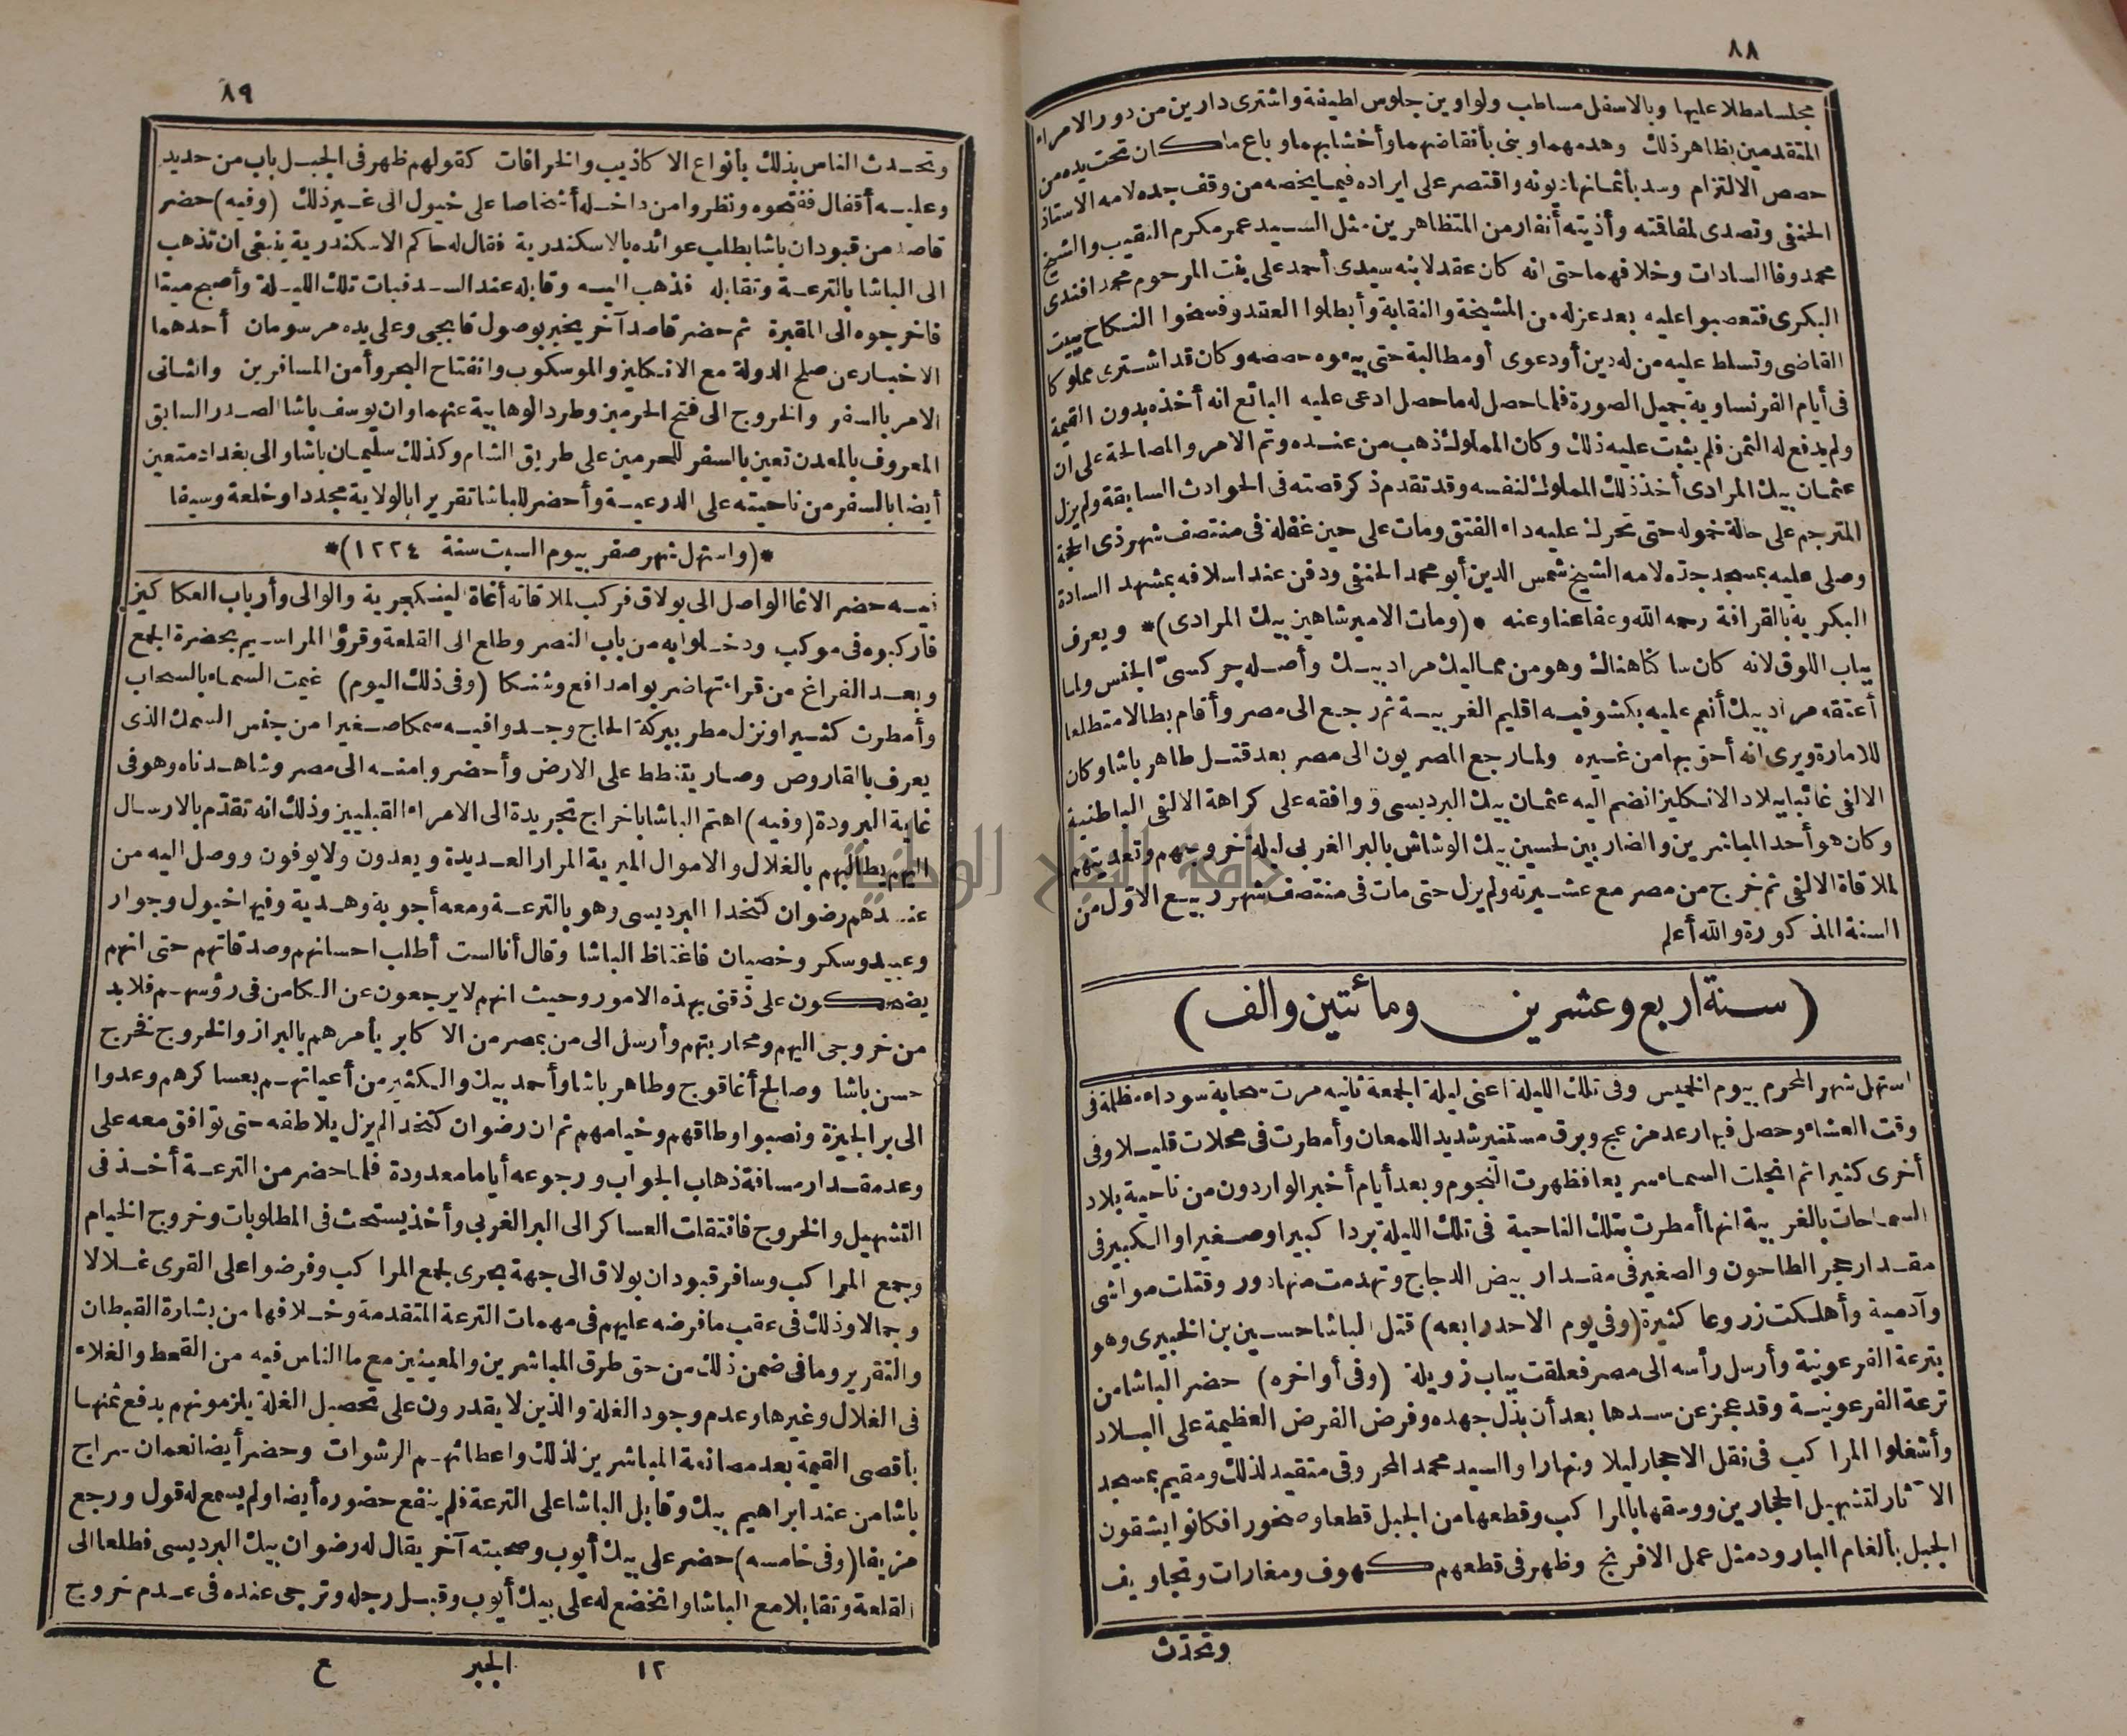 ٨٨
مجلسا مطلا عليها وبالاسفل مساطب ولواوين جلوس لطيفة واشترى دارين من دور الامراء
المتقدمين بظاهر ذلك وهدمهما وبنى بأنقاضهما وأخشابهما وباع ما كان تحت يده من
حصص الالتزام وسد بأثمانها ديونه واقتصر على ايراده فيما يخصه من وقف جده لامه الاستاذ
الحنفى وتصدى لمفاقته وأذيته أنفار من المتظاهرين مثل السيد عمر مكرم النقيب والشيخ
محمد وفا السادات وخلافهما حتى انه كان عقد لابنه سيدى أحمد على بنت المرحوم محمد افندى
البكرى فتعصبوا عليه بعد عزله من المشيخة والنقابة وأبطلوا العقد وفسخوا النكاح ببيت
القاضى وتسلط عليه من له دين أو دعوى أو مطالبة حتى بيعوه حصصه وكان قد اشترى مملوكا
فى أيام الفرنساوية جميل الصورة فلما حصل له ما حصل ادعى عليه البائع انه أخذه بدون القيمة
ولم يدفع له الثمن فلم يثبت عليه ذلك وكان المملوك ذهب من عنده وتم الامر والمصالحة على ان
عثمان بيك المرادى أخذ ذلك المملوك لنفسه وقد تقدم ذكر قصته فى الحوادث السابقة ولم يزل
المترجم على حالة خموله حتى تحرك عليه داء الفتق ومات على حين غفلة فى منتصف شهر ذى الحجة
وصلى عليه بمسجد جده لامه الشيخ شمس الدين أبو محمد الحنفى ودفن عند اسلافه بمشهد السادة
البكرية بالقرافة رحمه الله وعفا عنا وعنه * (ومات الامير شاهين بيك المرادى)* ويعرف
بباب اللوق لانه كان ساكنا هناك وهو من مماليك مراد بيك وأصله چركسىّ الجنس ولما
أعتقه مراد بيك أنعم عليه بكشوفية اقليم الغربية ثم رجع الى مصر وأقام بطالا متطلعا
للامارة ويرى انه أحق بها من غيره ولما رجع المصريون الى مصر بعد قتل طاهر باشا وكان
الالفى غائبا ببلاد الانكليز انضم اليه عثمان بيك البرديسى ووافقه على كراهة الالفى الباطنية
وكان هو أحد المباشرين والضاربين لحسين بيك الوشاش بالبر الغربى ليلة خروجهم وتعديتهم
لملاقاة الالفى ثم خرج من مصر مع عشيرته ولم يزل حتى مات فى منتصف شهر ربيع الاول من
السنة المذكورة والله أعلم
(سنة اربع وعشرين ومائتين والف)
استهل شهر المحرم بيوم الخميس وفى تلك الليلة اعنى ليلة الجمعة ثانيه مرت سحابة سوداء مظلمة فى
وقت العشاء وحصل فيها رعد مزعج وبرق مستنير شديد اللمعان وأمطرت فى محلات قليلا وفى
أخرى كثيرا ثم انجلت السماء سريعا فظهرت النجوم وبعد أيام أخبر الواردون من ناحية بلاد
السماحات بالغربية انها أمطرت بتلك الناحية فى تلك الليلة بردا كبيرا وصغيرا والكبير فى
مقدار حجر الطاحون والصغير فى مقدار بيض الدجاج وتهدمت منها دور وقتلت مواشى
وآدمية وأهلكت زروعا كثيرة (وفى يوم الاحد رابعه) قتل الباشا حسين بن الخبيرى وهو
بترعة الفرعونية وأرسل رأسه الى مصر فعلقت بباب زويلة (وفى أواخره) حضر الباشا من
ترعة الفرعونية وقد عجز عن سدها بعد أن بذل جهده وفرض الفرض العظيمة على البلاد
وأشغلوا المراكب فى نقل الاحجار ليلا ونهارا والسيد محمد المحروقى متقيد لذلك ومقيم بمسجد
الآثار لتشهيل الحجارين ووسقها بالمراكب وقطعها من الجبل قطعا وصخورا فكانوا يشقون
الجبل بألغام البارود مثل عمل الافرنج وظهر فى قطعهم كهوف ومغارات وتجاويف
وتحدّث
٨٩
وتحدث الناس بذلك بأنواع الاكاذيب والخرافات كقولهم ظهر فى الجبل باب من حديد
وعليه أقفال ففتحوه ونظروا من داخله أشخاصا على خيول الى غير ذلك (وفيه) حضر
قاصد من قبودان باشا يطلب عوائده بالاسكندرية فقال له حاكم الاسكندرية ينبغى ان تذهب
الى الباشا بالترعة وتقابله فذهب اليه وقابله عند السد فبات تلك الليلة وأصبح ميتا
فاخرجوه الى المقبرة ثم حضر قاصد آخر يخبر بوصول قابجى وعلى يده مرسومان أحدهما
الاخبار عن صلح الدولة مع الانكليز والموسكوب وانفتاح البحر وأمن المسافرين والثانى
الامر بالسفر والخروج الى فتح الحرمين وطرد الوهابية عنهما وان يوسف باشا الصدر السابق
المعروف بالمعدن تعين بالسفر للحرمين على طريق الشام وكذلك سليمان باشا والى بغداد متعين
أيضا بالسفر من ناحيته على الدرعية وأحضر للباشا تقريرا بالولاية مجددا وخلعة وسيفا
*(واستهل شهر صفر بيوم السبت سنة ١٢٢٤)*
فيه حضر الاغا الواصل الى بولاق فركب لملاقاته أغاة الينكجرية والوالى وأرباب العكاكيز
فاركبوه فى موكب ودخلوا به من باب النصر وطلع الى القلعة وقرؤا المراسيم بحضرة الجمع
وبعد الفراغ من قراءتها ضربوا مدافع وشنكا (وفى ذلك اليوم) غيمت السماء بالسحاب
وأمطرت كثيرا ونزل مطر ببركة الحاج وجدوا فيه سمكا صغيرا من جنس السمك الذى
يعرف بالقاروص وصار يتنطط على الارض وأحضروا منه الى مصر وشاهدناه وهو فى
غاية البرودة (وفيه) اهتم الباشا باخراج تجريدة الى الامراء القبليين وذلك انه تقدّم بالارسال
اليهم يطالبهم بالغلال والاموال الميرية المرار العديدة ويعدون ولا يوفون ووصل اليه من
عندهم رضوان كتخدا البرديسى وهو بالترعة ومعه أجوبة وهدية وفيها خيول وجوار
وعبيد وسكر وخصيان فاغتاظ الباشا وقال أنا لست أطلب احسانهم وصدقاتهم حتى انهم
يضحكون على ذقنى بهذه الامور وحيث انهم لا يرجعون عن الكامن فى رؤسهم فلا بد
من خروجى اليهم ومحاربتهم وأرسل الى من بمصر من الاكابر يأمرهم بالبراز والخروج فخرج
حسن باشا وصالح أغا قوج وطاهر باشا وأحمد بيك والكثير من أعيانهم بعساكرهم وعدوا
الى بر الجيزة ونصبوا وطاقهم وخيامهم ثم ان رضوان كتخدا لم يزل يلاطفه حتى توافق معه على
وعد مقدار مسافة ذهاب الجواب ورجوعه أياما معدودة فلما حضر من الترعة أخذ فى
التشهيل والخروج فانتقلت العساكر الى البر الغربى وأخذ يستحث فى المطلوبات وخروج الخيام
وجمع المراكب وسافر قبودان بولاق الى جهة بحرى لجمع المراكب وفرضوا على القرى غلالا
وجمالا وذلك فى عقب ما فرضه عليهم فى مهمات الترعة المتقدمة وخلافها من بشارة القبطان
والتقرير وما فى ضمن ذلك من حق طرق المباشرين والمعينين مع ما الناس فيه من القحط والغلاء
فى الغلال وغيرها وعدم وجود الغلة والذين لا يقدرون على تحصيل الغلة يلزمونهم بدفع ثمنها
بأقصى القيمة بعد مصانعة المباشرين لذلك واعطائهم الرشوات وحضر أيضا نعمان سراج
باشا من عند ابراهيم بيك وقابل الباشا على الترعة فلم ينفع حضوره أيضا ولم يسمع له قول ورجع
مزيفا (وفى خامسه) حضر على بيك أيوب وصحبته آخر يقال له رضوان بيك البرديسى فطلعا الى
القلعة وتقابلا مع الباشا وانخضع له على بيك أيوب وقبل رجله وترجى عنده فى عدم خروج
١٢ الجبر ع